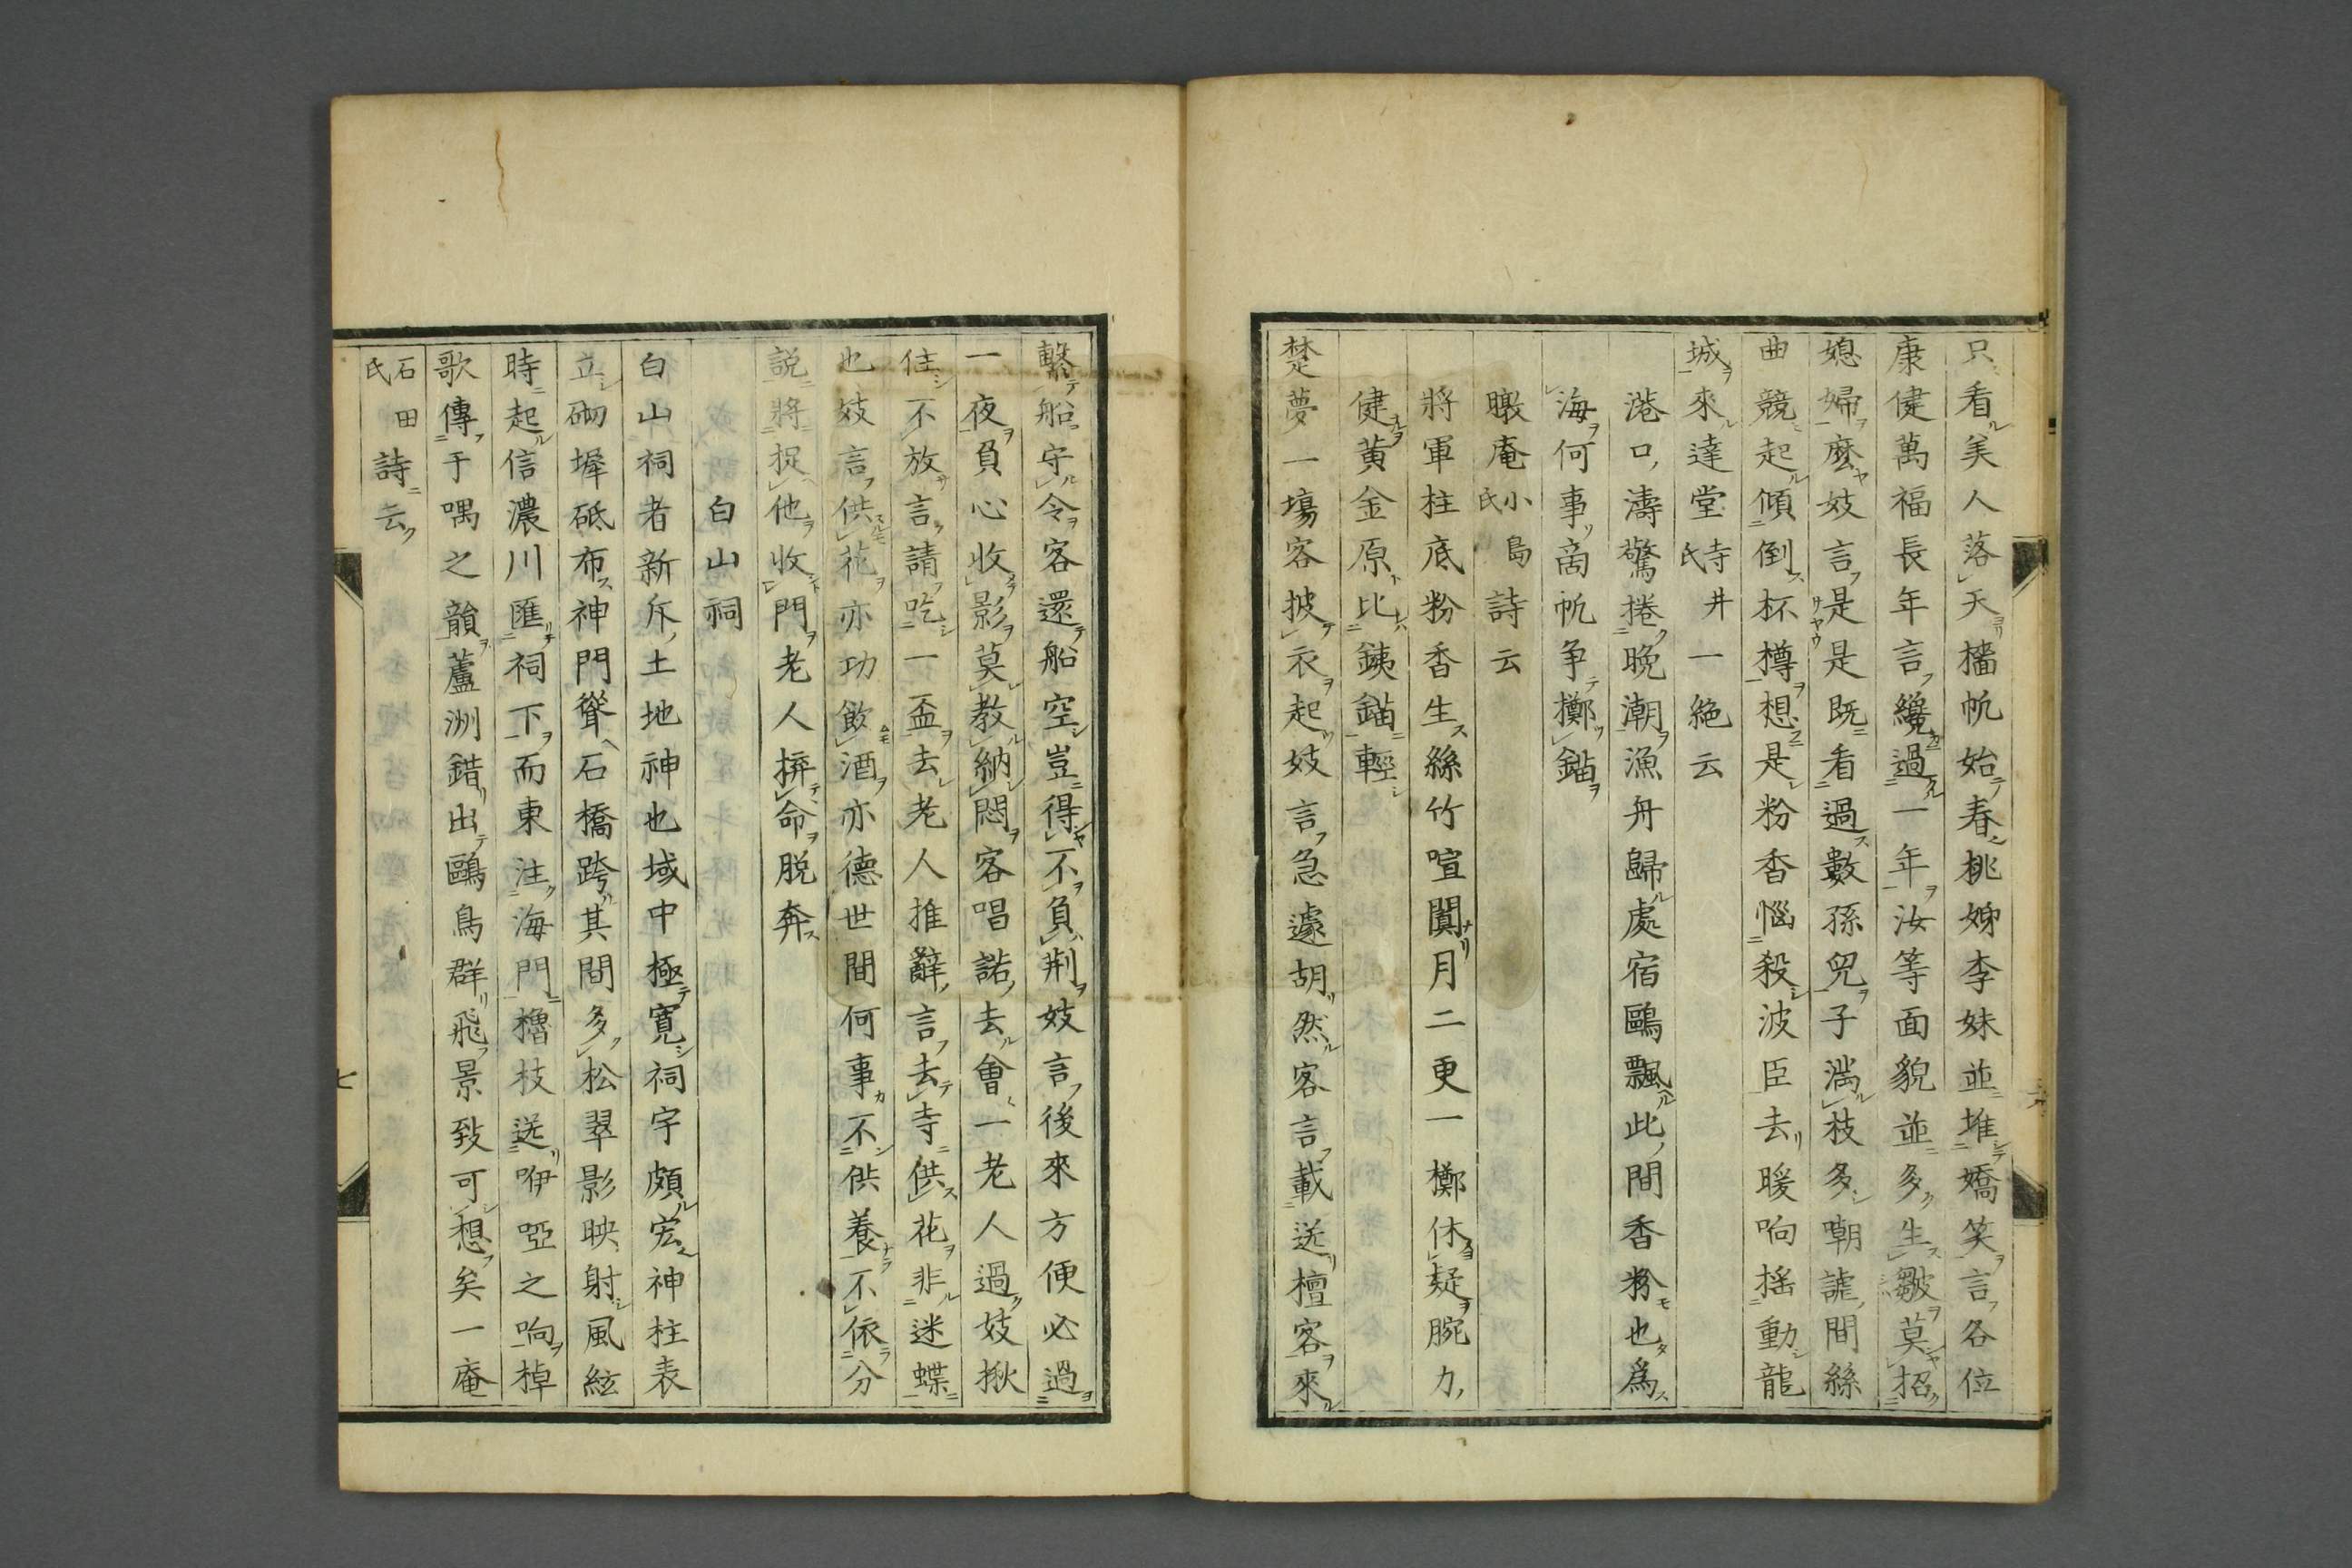 只看美人落天檣帆始春桃姊李妹並堆嬌笑言各位
康健萬福長年言纔過一年汝等面貌並多生皺莫招
媳婦麼妓言是是既看過數孫兒子滿枝多嘲謔間絲
曲競起傾倒杯樽想是粉香惱殺波臣去暖响搖動龍
城來達堂寺井氏一絶云
港口濤驚捲晩潮漁舟歸處宿鷗飄此間香粉也爲
海何事商帆争擲錨
暾庵小島氏詩云
將軍柱底粉香生絲竹喧闐月二更一擲休疑腕力
健黄金原比銕錨輕
楚夢一塲客披衣起妓言急遽胡然客言載送檀客來
繫船守令客還船空豈得不負荆妓言後來方便必過
一夜負心收影莫教納悶客唱諾去會一老人過妓揪
住不放言請吃一盃去老人推辭言去寺供花非迷蝶
也妓言供花亦功飲酒亦德世間何事不供養不依分
説將捉他收門老人擠命脱奔
白山祠
白山祠者新斥土地神也域中極寛祠宇頗宏神柱表
立砌墀砥布神門聳石橋跨其間多松翠影映射風絃
時起信濃川匯祠下而東注海門櫓枝送咿啞之响棹
歌傳于喁之韻蘆洲錯出鷗鳥群飛景致可想矣一庵
石田氏詩云
七